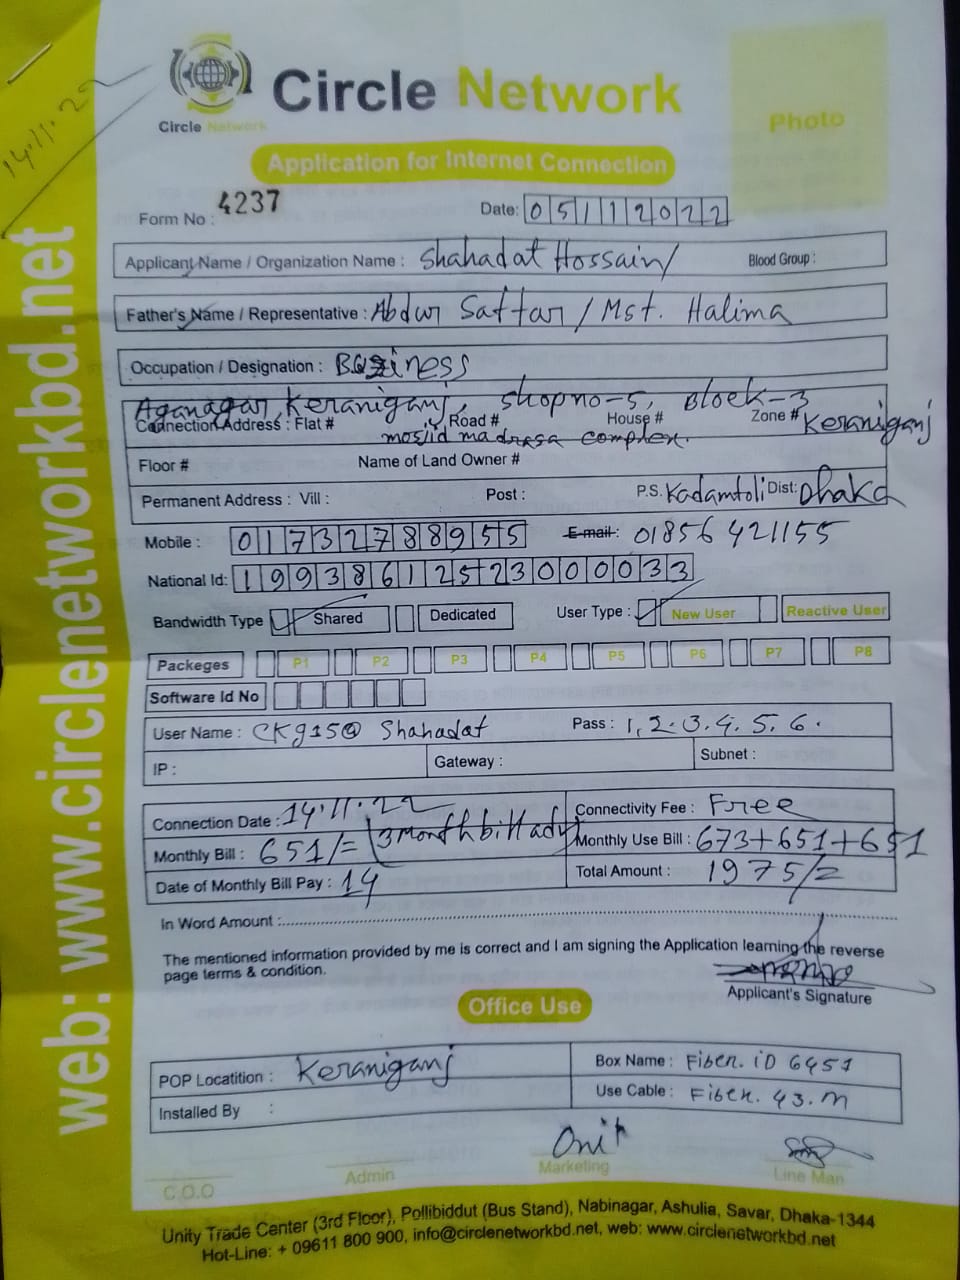 14.11.22
web: www.circlenetworkbd.net
Circle Network
Circle Network
Photo
Application for Internet Connection
Form No : 4237
Date: 05112022
Applicant Name / Organization Name : Shahadat Hossain
Blood Group :
Father's Name / Representative : Abdur Sattar / Mst. Halima
Occupation / Designation : Business
Aganagar, Keraniganj, Shop no-5, Block-3
Connection Address : Flat # Road # House # Zone # Keraniganj
mosjid madrasa complex.
Floor # Name of Land Owner #
Permanent Address : Vill : Post : P.S. Kadamtoli Dist: Dhaka
Mobile : 01732788955 E-mail: 01856421155
National Id: 19938612523000033
Bandwidth Type Shared Dedicated User Type : New User Reactive User
Packeges P1 P2 P3 P4 P5 P6 P7 P8
Software Id No
User Name : CKg15@ Shahadat Pass : 1,2.3.4.5.6.
IP : Gateway : Subnet :
Connection Date : 14.11.22 Connectivity Fee : Free
Monthly Bill : 651/= (3 month bill adv Monthly Use Bill : 673+651+651
Date of Monthly Bill Pay : 14 Total Amount : 1975/=
In Word Amount :
The mentioned information provided by me is correct and I am signing the Application learning the reverse
page terms & condition.
Applicant's Signature
Office Use
POP Locatition : Keraniganj Box Name : Fiber. iD 6451
Installed By : Use Cable : Fiber. 43.m
Onik
C.O.O Admin Marketing Line Man
Unity Trade Center (3rd Floor), Pollibiddut (Bus Stand), Nabinagar, Ashulia, Savar, Dhaka-1344
Hot-Line: + 09611 800 900, info@circlenetworkbd.net, web: www.circlenetworkbd.net